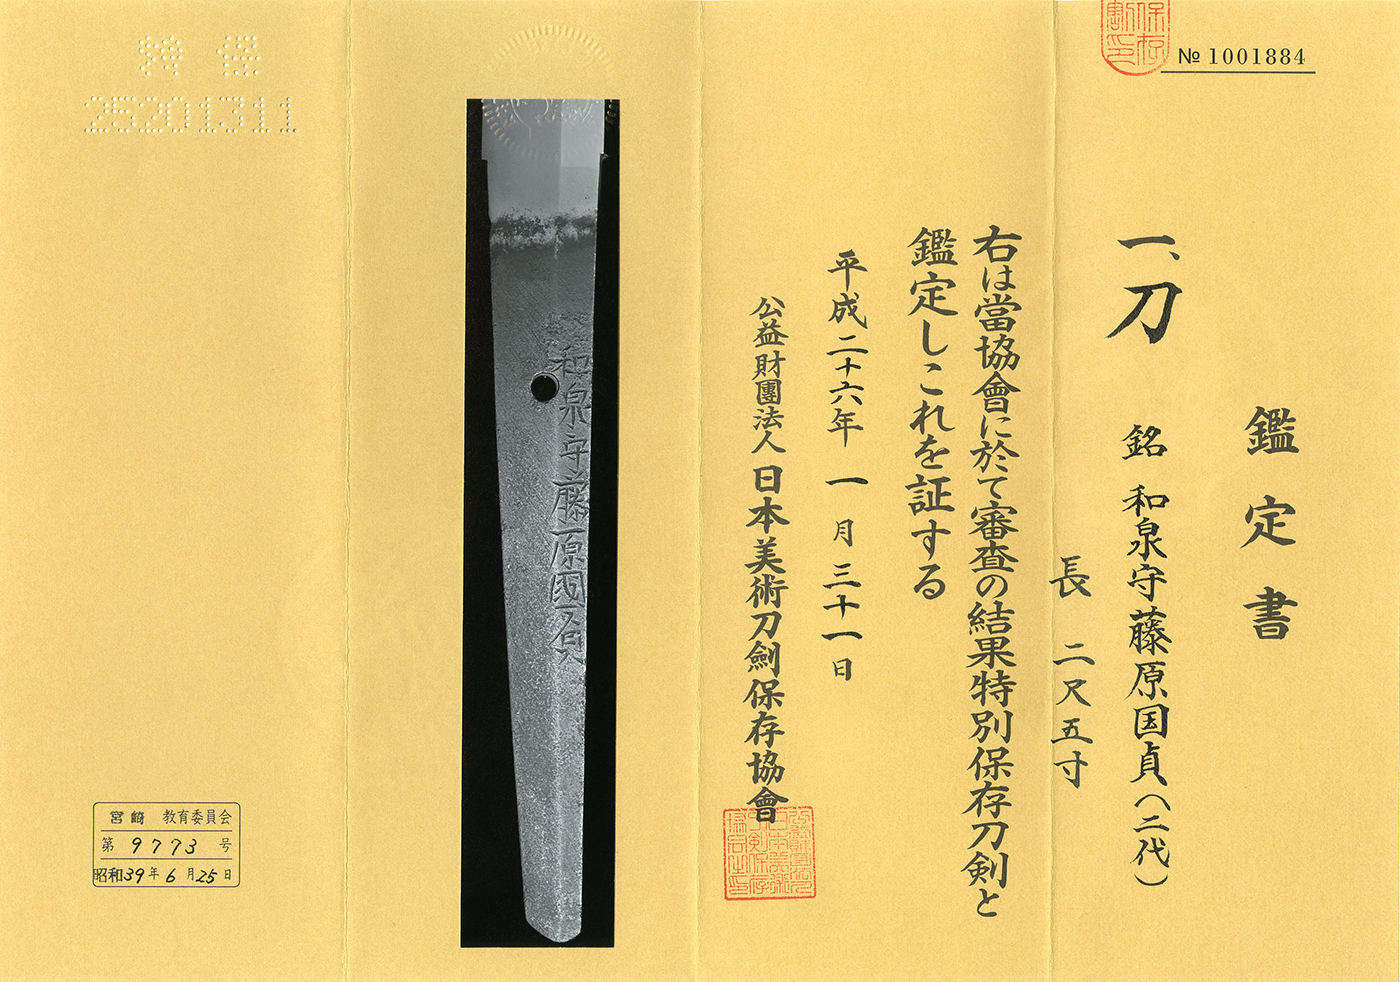 № 1001884
鑑定書
一、刀 銘 和泉守藤原国貞(二代)
長 二尺五寸
右は當協會に於て審査の結果特別保存刀剣と
鑑定しこれを証する
平成二十六年 一月三十一日
公益財團法人 日本美術刀劍保存協會
和泉守藤原國貞
保存
割印
特保
25201311
宮崎 教育委員会
第 9773 号
昭和39年6月25日